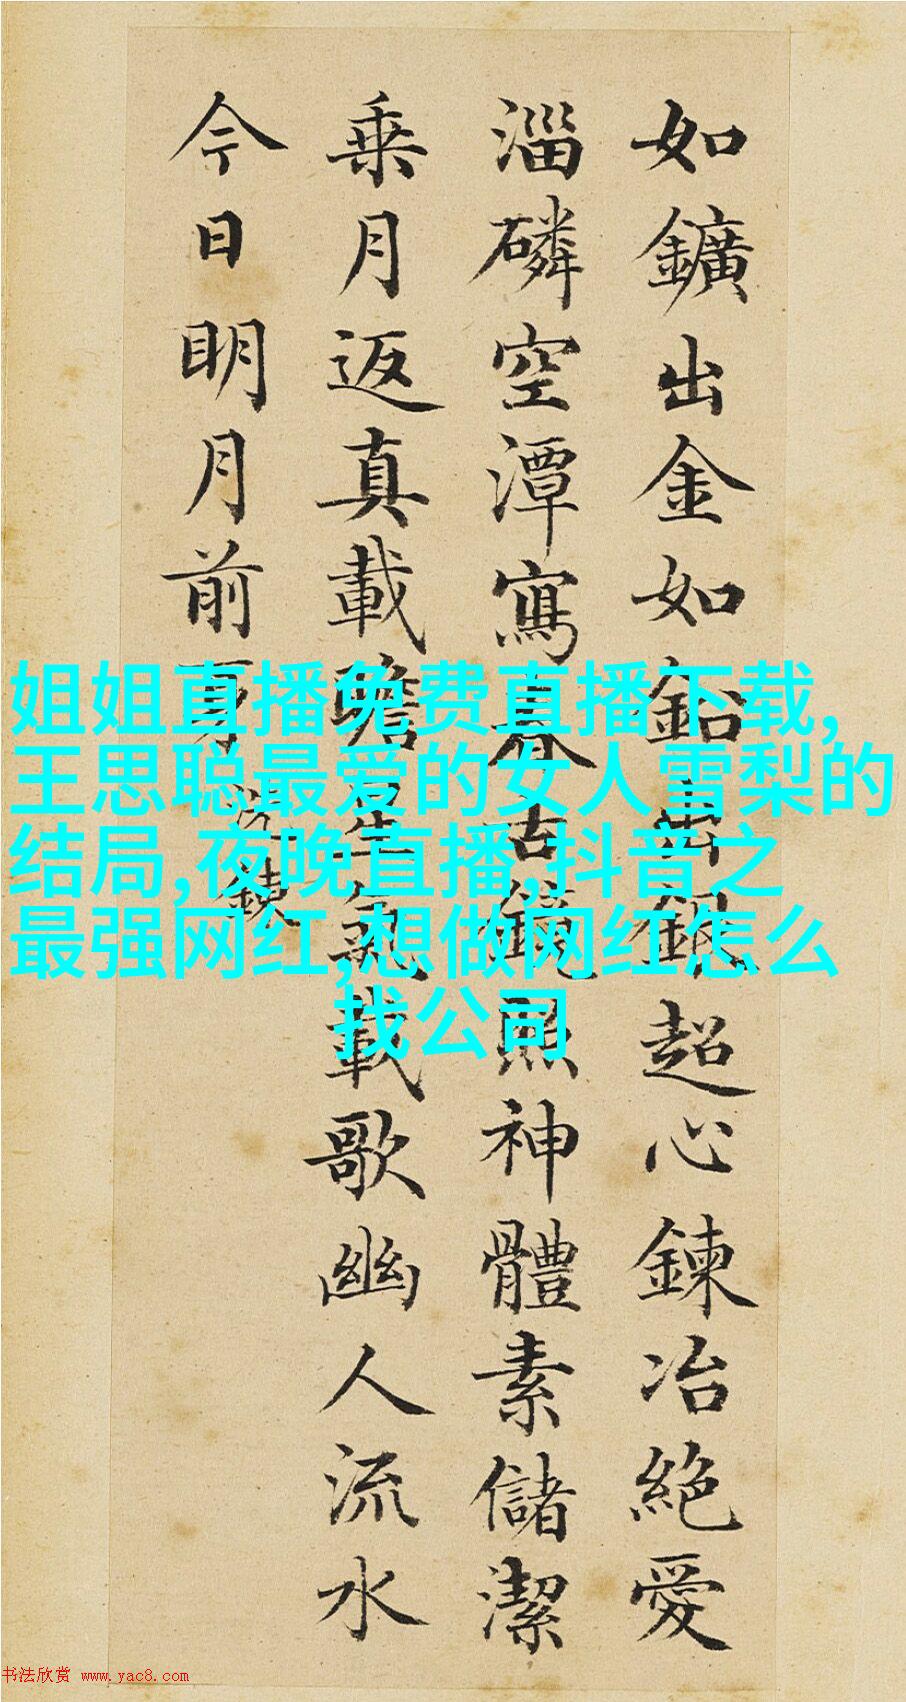 如鑛出金如鉛出銀超心鍊冶絕愛
淄磷空潭寫春古鏡照神體素儲潔
乗月返真載瞻星氣載歌幽人流水
今日明月前身 洗鍊
姐姐直播免费直播下载,
王思聪最爱的女人雪梨的
结局,夜晚直播,抖音之
最强网红,想做网红怎么
找公司
书法欣赏 www.yac8.com